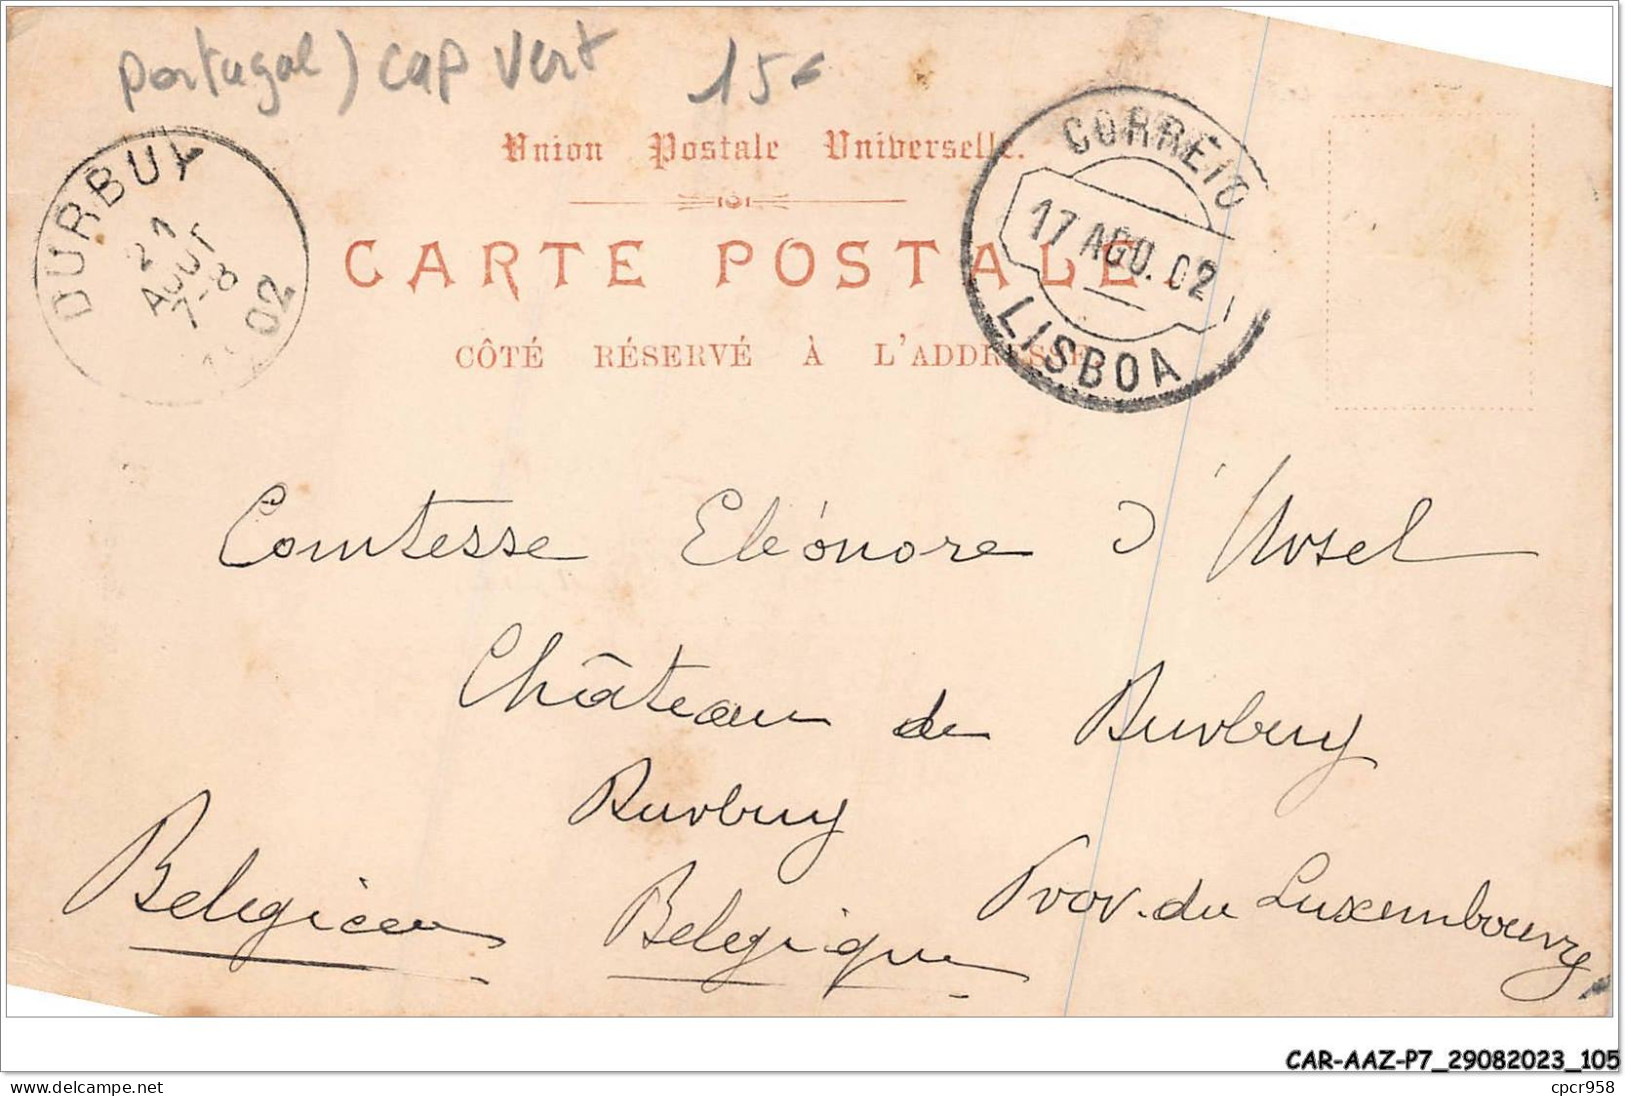 Portugal) Cap Vert 15€
Union Postale Universelle.
CARTE POSTALE.
CÔTÉ RÉSERVÉ À L'ADDRESSE
DURBUY
21
AOUT
7-8
02
CORREIO
17 AGO. 02
LISBOA
Comtesse Eléonore d'Ursel
Château de Durbuy
Durbuy
Belgicca Belgique Prov. du Luxembourg
CAR-AAZ-P7_29082023_105
delcampe.net
cpcr958